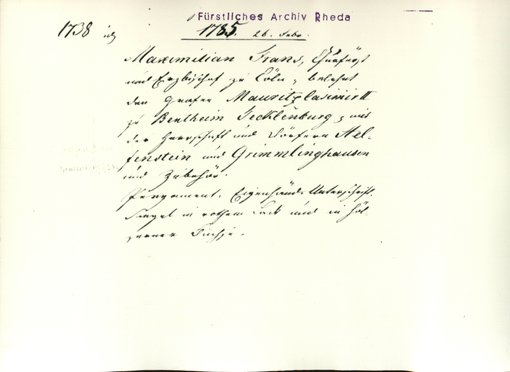 Fürstliches Archiv Rheda
1738 1785 26. Febr.
Maximilian Franz, Churfürst
und Erzbischof zu Cöln, belehnt
den Grafen Mauritz Casimir II
zu Bentheim Tecklenburg, mit
der Herrschaft und Dörfern Hel-
fenstein und Grimmlinghausen
und Zubehör.
Pergament. Eigenhänd. Unterschrift.
Siegel in rothem Lack und in höl-
zerner Büchse.